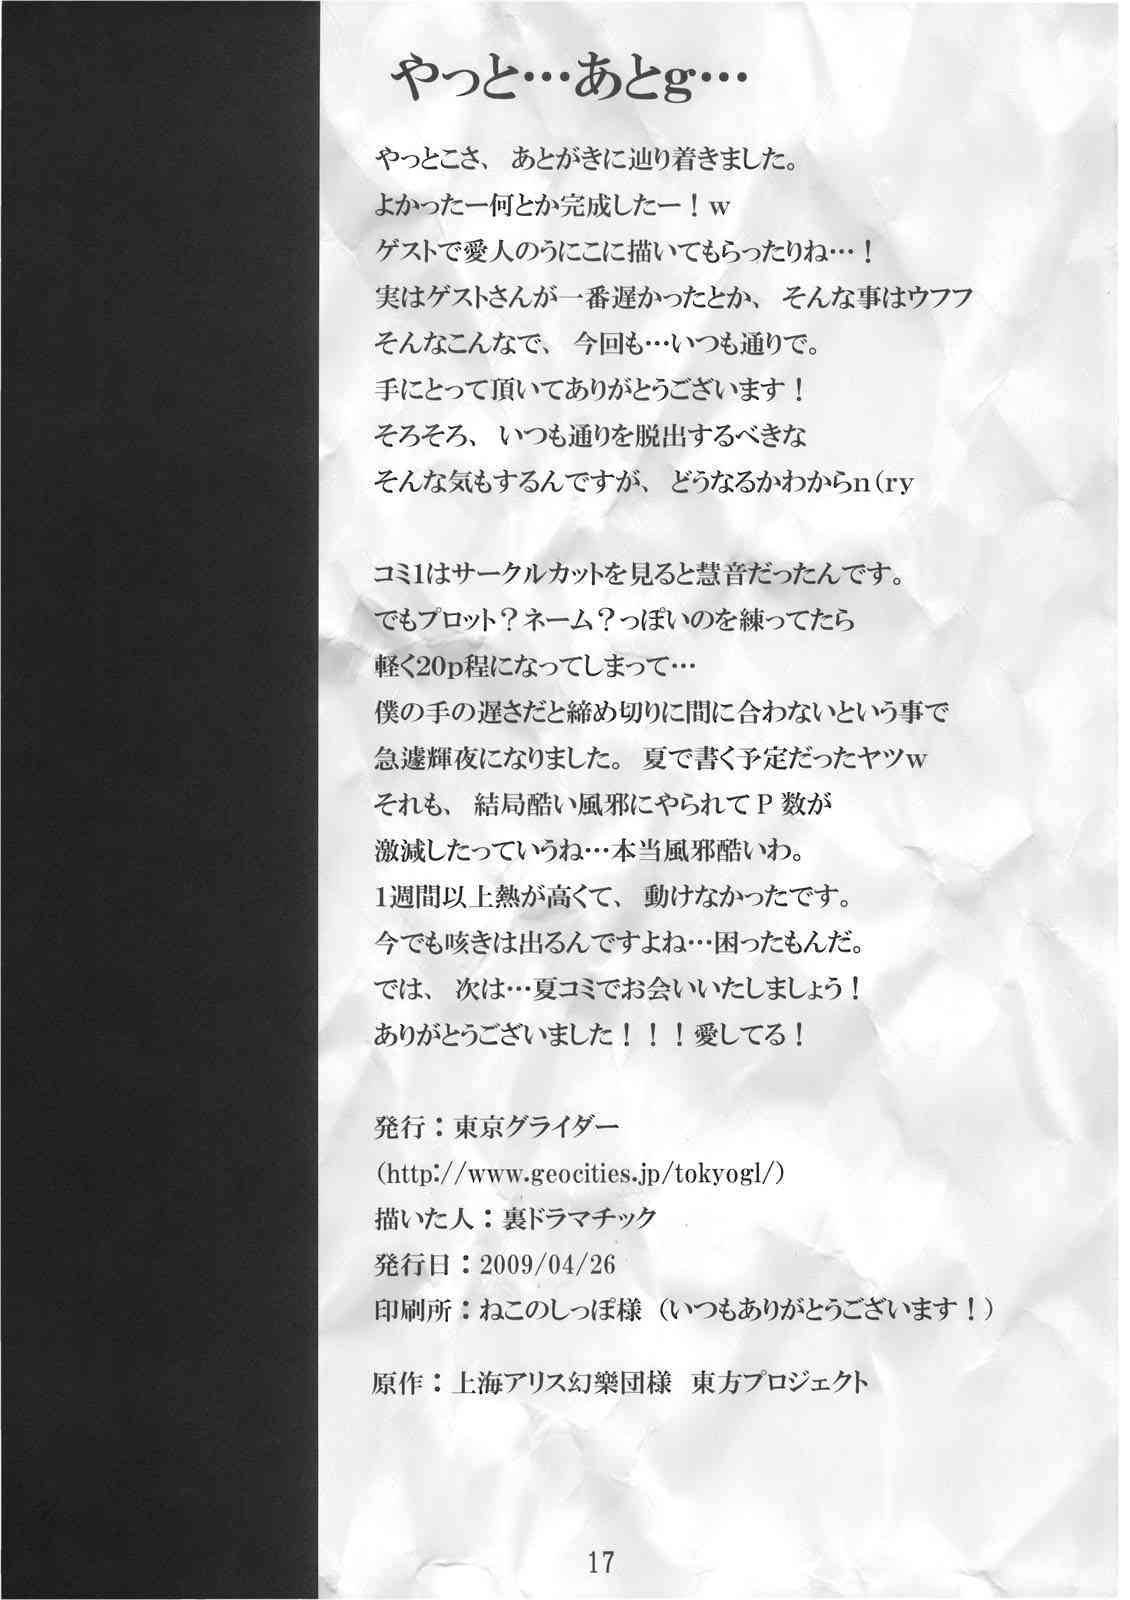 やっと…あとg…
やっとこさ、あとがきに辿り着きました。
よかったー何とか完成したー！ｗ
ゲストで愛人のうにこに描いてもらったりね…！
実はゲストさんが一番遅かったとか、そんな事はウフフ
そんなこんなで、今回も…いつも通りで。
手にとって頂いてありがとうございます！
そろそろ、いつも通りを脱出するべきな
そんな気もするんですが、どうなるかわからn(ry
コミ1はサークルカットを見ると慧音だったんです。
でもプロット？ネーム？っぽいのを練ってたら
軽く20p程になってしまって…
僕の手の遅さだと締め切りに間に合わないという事で
急遽輝夜になりました。夏で書く予定だったヤツｗ
それも、結局酷い風邪にやられてＰ数が
激減したっていうね…本当風邪酷いわ。
1週間以上熱が高くて、動けなかったです。
今でも咳きは出るんですよね…困ったもんだ。
では、次は…夏コミでお会いいたしましょう！
ありがとうございました！！！愛してる！
発行：東京グライダー
（http://www.geocities.jp/tokyogl/）
描いた人：裏ドラマチック
発行日：2009/04/26
印刷所：ねこのしっぽ様（いつもありがとうございます！）
原作：上海アリス幻樂団様　東方プロジェクト
17